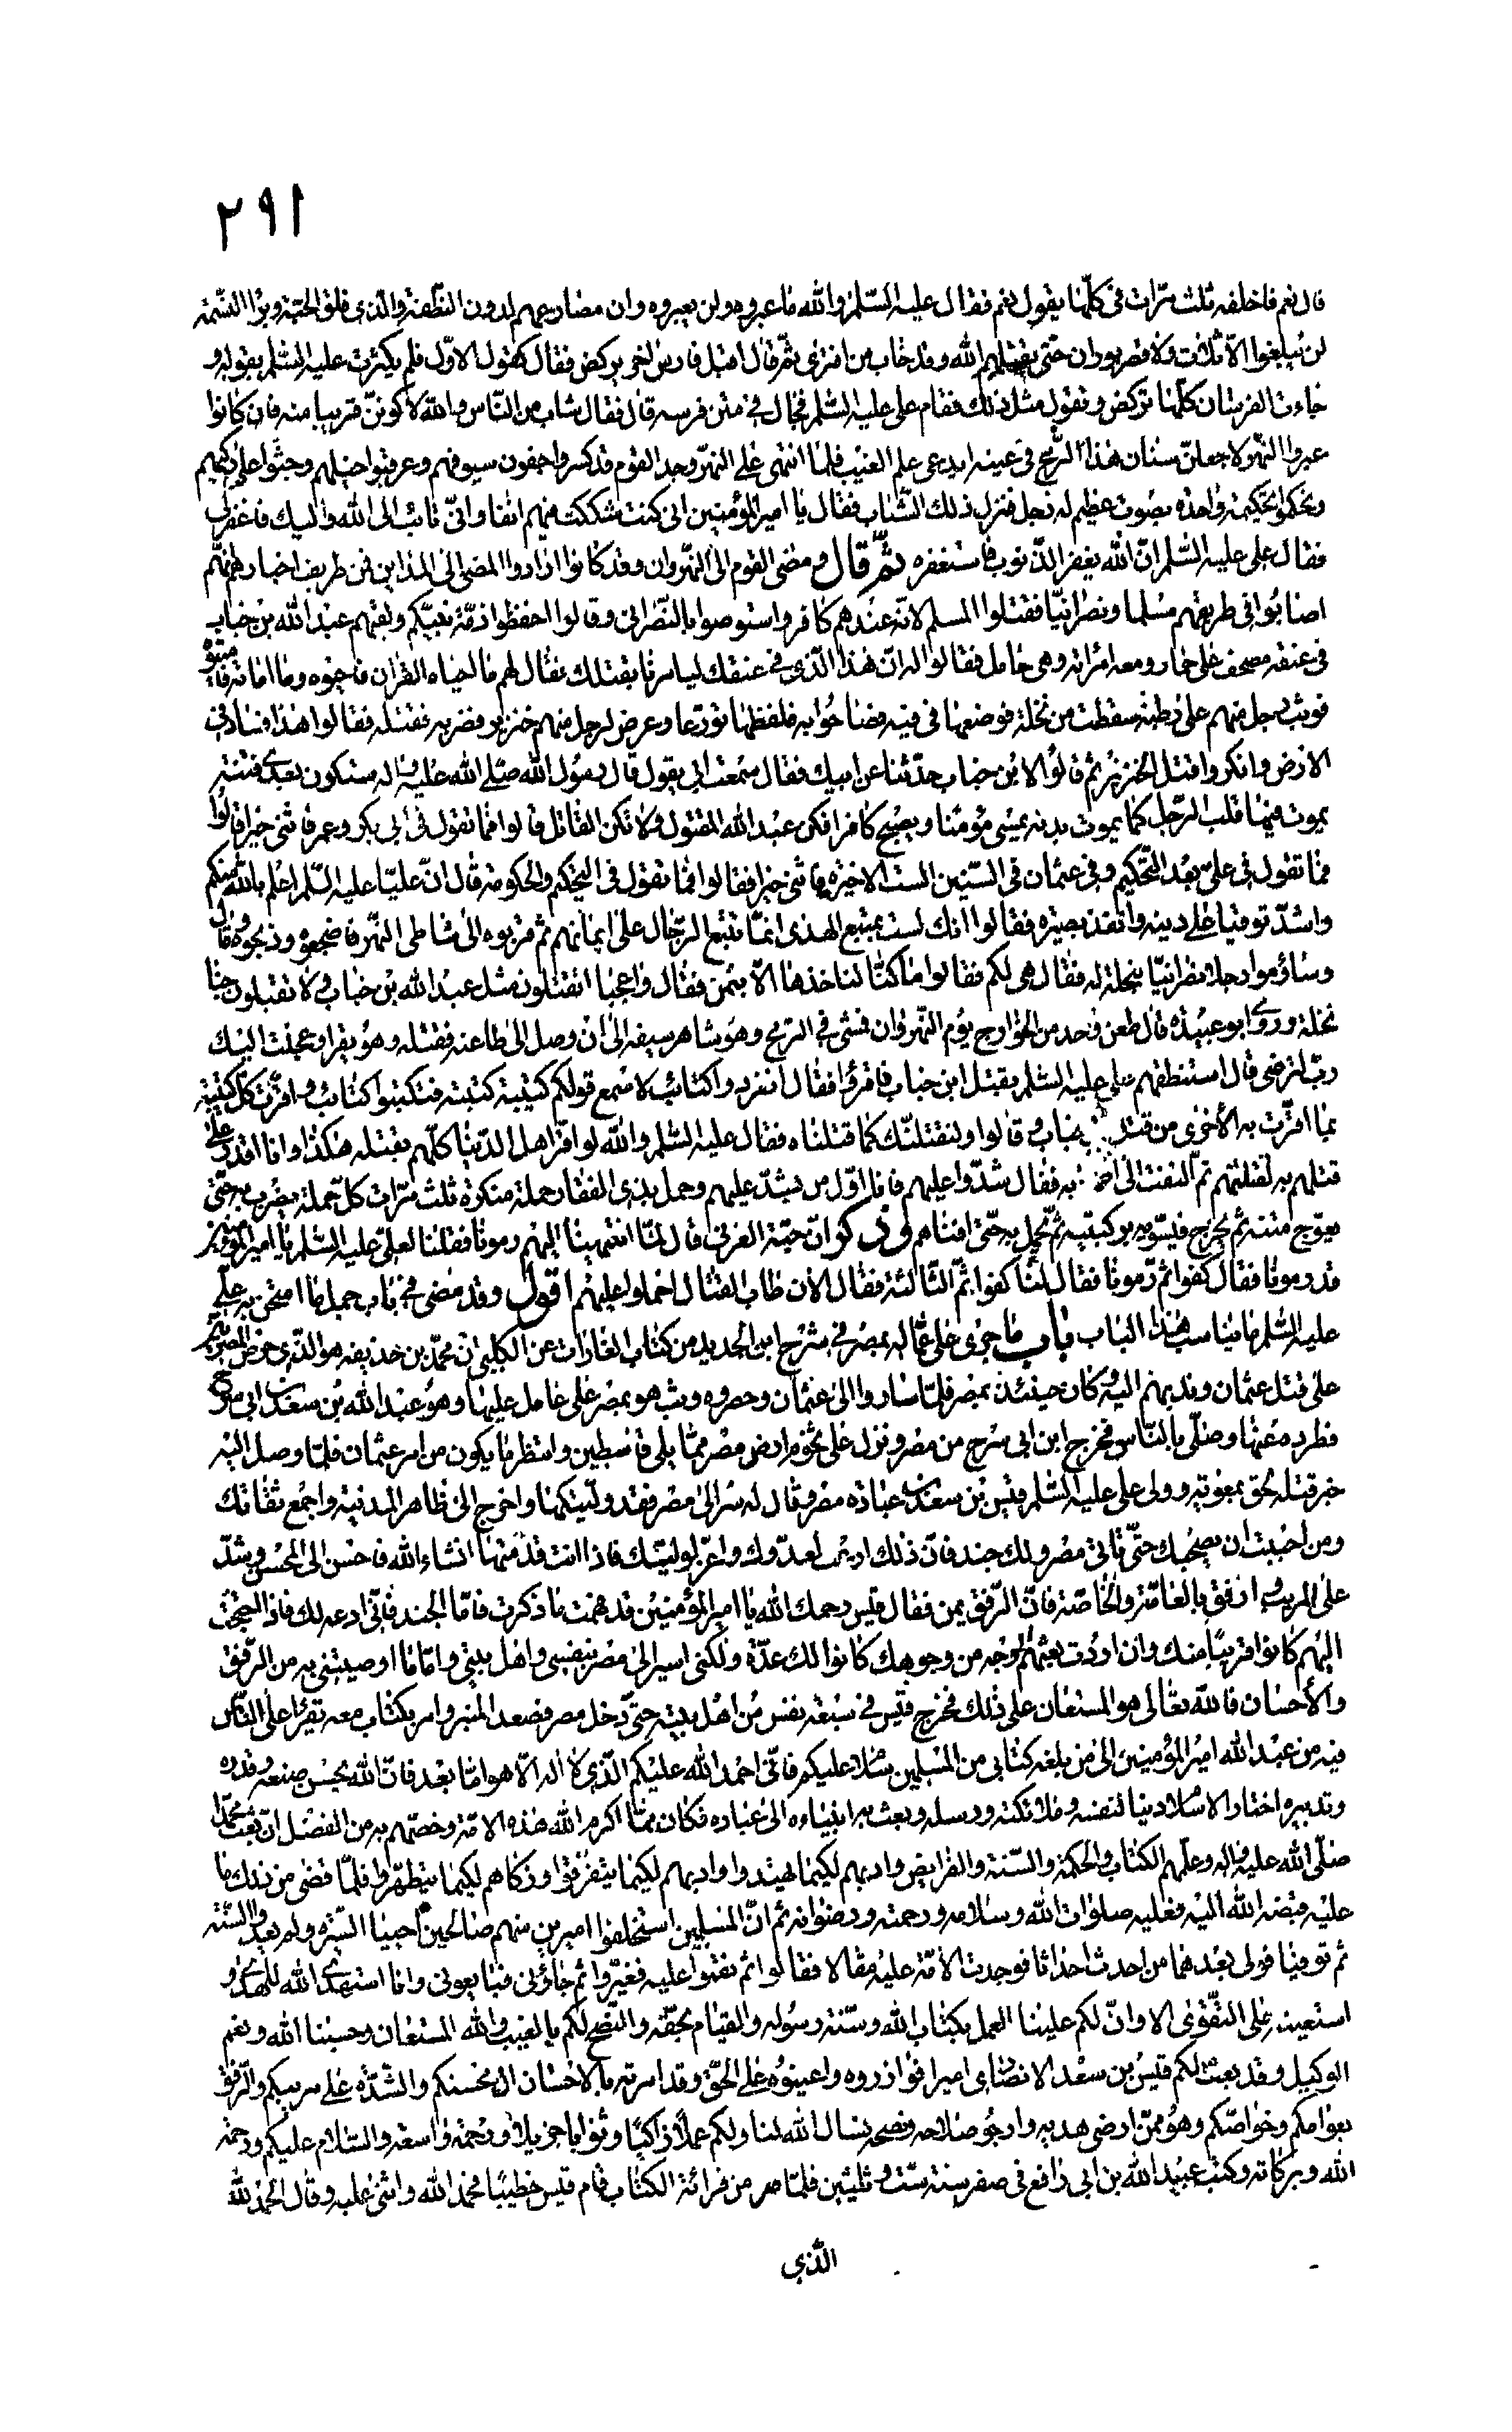 ٢٩١
قال نعم فاخلفه ثلث مرّات في كلّها يقول نعم فقال عليه السّلم والله ما عبروه ولن يعبروه وان مصارعهم لدون النّطفة والّذى فلق الحبّة وبرأ النّسمة
لن يبلغوا الاثلاث ولا قصر بوران حتّى يقتلهم الله وقد خاب من افترى ثمّ قال اقبل فارس اخر يركض فقال كقول الاوّل فلم يكترث عليه السّلم بقوله و
جاءت الفرسان كلّها تركض وتقول مثل ذلك فقام على عليه السّلم فجال في متن فرسه قال فقال شاب من النّاس والله لاكوننّ قريبا منه فان كانوا
عبروا النّهر لاجعلنّ سنان هذا الرّمح في عينه ايدعى علم الغيب فلمّا انتهى على النّهر وجد القوم قد كسروا جفون سيوفهم وعرقبوا خيلهم وجثوا على ركبهم
وحكموا تحكيمة واحدة بصوت عظيم له زجل فنزل ذلك الشّاب فقال يا امير المؤمنين انى كنت شككت فيهم انفا وانّى تائب الى الله واليك فاغفر لى
فقال على عليه السّلم انّ الله يغفر الذّنوب فاستغفره ثمّ قال ومضى القوم الى النّهروان وقد كانوا ارادوا المضى الى المداين فمن طريف اخبارهم انّهم
اصابوا في طريقهم مسلما ونصرانيّا فقتلوا المسلم لانّه عندهم كافر واستوصوا بالنّصرانى وقالوا احفظوا ذمّة نبيّكم ولقيهم عبد الله بن خباب
في عنقه مصحف على حمار ومعه امراته وهى حامل فقالوا له انّ هذا الّذى في عنقك ليامرنا بقتلك فقال لهم ما احياه القران فاحيوه وما اماته فاميتوه
فوثب رجل منهم على رطبة سقطت من نخلة فوضعها في فيه فصاحوا به فلفظها تورّعا وعرض لرجل منهم خنزير فضربه فقتله فقالوا هذا فساد في
الارض وانكروا قتل الخنزير ثم قالوا لابن خباب حدّثنا عن ابيك فقال سمعت ابى يقول قال رسول الله صلّى الله عليه واله ستكون بعدى فتنة
يموت فيها قلب الرّجل كما يموت بدنه يمسى مؤمنا ويصبح كافرا فكن عبد الله المقتول ولا تكن القاتل قالوا فما تقول في ابى بكر وعمر فاثنى خيرا قالوا
فما تقول في علىّ بعد التّحكيم وفي عثمان في السّنين الست الاخيرة فاثنى خيرا فقالوا فما تقول في التحكيم والحكومة قال انّ عليّا عليه السّلم اعلم بالله منكم
واشدّ توقيا على دينه وانفذ بصيرة فقالوا انك لست بمتبع الهدى انّما تتبع الرّجال على ايمانهم ثم قربوه الى شاطى النّهر فاضجعوه وذبحوه قال
وساوموا رجلا نصرانيّا بنخلة له فقال هى لكم فقالوا ما كنّا لناخذها الّا بثمن فقال واعجبا اتقتلون مثل عبد الله بن خباب ولا تقبلون جنا
نخلة وروى ابو عبيدة قال طعن واحد من الخوارج يوم النّهروان فمشى في الرّمح وهو شاهر سيفه الى ان وصل الى طاعنه فقتله وهو يقرا وعجلت اليك
ربّ لترضى قال استنطقهم على عليه السّلم بقتل ابن خباب فاقرّوا فقال انفردوا كتائب لاسمع قولكم كتيبة كتيبة فتكتبوا كتائب واقرّت كلّ كتيبة
بما اقرّت به الأخرى من قتل خباب وقالوا ولنقتلنّك كما قتلناه فقال عليه السّلم والله لو اقرّ اهل الدّنيا كلّهم بقتله هكذا وانا اقدر على
قتلهم به لقتلتهم ثمّ التفت الى به فقال شدّوا عليهم فانا اوّل من يشدّ عليهم وحمل بذى الفقار حملة منكرة ثلث مرّات كلّ حملة يضرب به حتّى
يعوّج متنه ثم يخرج فيسوّيه بركبتيه ثمّ يحمل به حتّى افناهم وذكر انّ حبّة العرنى قال لمّا انتهينا اليهم رمونا فقلنا لعلىّ عليه السّلم يا امير المؤمنين
قد رمونا فقال كفوا ثم رمونا فقال لنا كفوا ثمّ الثّالثة فقال الأن طاب القتال احملوا عليهم اقول وقد مضى في باب جمل ما امتحن به علىّ
عليه السّلم ما يناسب هذا الباب باب ما جرى على عمّاله بمصر في شرح ابن الحديد من كتاب الغارات عن الكلبى انّ محمّد بن حذيفه هو الّذى حرض المصريين
على قتل عثمان وندبهم اليه وكان حينئذ بمصر فلمّا ساروا الى عثمان وحصروه وثب هو بمصر على عامل عليها وهو عبد الله بن سعد بن ابى سرح
فطرده عنها وصلّى بالنّاس فخرج ابن ابى سرح من مصر ونزل على تخوم ارض مصر ممّا يلى فلسطين وانتظر ما يكون من امر عثمان فلمّا وصل اليه
خبر قتله لحق بمعوية وولى على عليه السّلم قيس بن سعد بن عباده مصر وقال له سر الى مصر فقد ولّيتكها واخرج الى ظاهر المدنية واجمع ثقاتك
ومن احببت ان يصحبك حتّى تاتى مصر ولك جند فانّ ذلك ارهب لعدّوك واعز لوليّك فاذا انت قدمتها انشاء الله فاحسن الى المحسن وشدّ
على المريب وارفق بالعامّة والخاصّة فانّ الرّفق يمن فقال قيس رحمك الله يا امير المؤمنين قد فهمت ما ذكرت فامّا الجند فانّى ادعه لك فاذا احتجت
اليهم كانوا قريبا منك وان اردت بعثهم لوجه من وجوهك كانوا لك عدّة ولكنى اسير الى مصر بنفسى واهل بيتى وامّا ما اوصيتنى به من الرّفق
والأحسان فالله تعالى هو المستعان على ذلك فخرج قيس في سبعة نفس من اهل بيته حتّى دخل مصر فصعد المنبر وامر بكتاب معه يقرا على النّاس
فيه من عبد الله امير المؤمنين الى من بلغه كتابى من المسلمين سلام عليكم فانّى احمد الله عليكم الّذى لا اله الّا هو امّا بعد فانّ الله بحسن صنعه وقدره
وتدبيره اختار الاسلام دينا لنفسه وملائكته ورسله وبعث به انبياءه الى عباده فكان ممّا اكرم الله هذه الامّة وخصّهم به من الفضل ان بعث محمّدا
صلّى الله عليه واله وعلّمهم الكتاب والحكمة والسّنة والفرايض وادبهم لكيما يهتدوا وادبهم لكيما يتفرّقوا وزكاهم لكيما يتطهّروا فلمّا قضى من ذلك ما
عليه قبضه الله اليه فعليه صلوات الله وسلامه ورحمته ورضوانه ثم انّ المسلمين استخلفوا اميرين منهم صالحين احييا السّيرة ولم يعدوا السّنة
ثم توفيا فولى بعدهما من احدث احداثا فوجدت الامّة عليه مقالا فقالوا ثم نقموا عليه فغيّروا ثم جاؤنى فبايعونى وانا استهدى الله للهدى و
استعينه على التّقوى الا وانّ لكم علينا العمل بكتاب الله وسنّة رسوله والقيام بحقّه والنّصح لكم بالغيب والله المستعان وحسبنا الله ونعم
الوكيل وقد بعثت لكم قيس بن سعد الانصارى اميرا فوازروه واعينوه على الحقّ وقد امرته بالاحسان الى محسنكم والشدّة على مريبكم والرّفق
بعوامكم وخواصّكم وهو ممّن ارضى هديه وارجو صلاحه ونصحه نسال الله لنا ولكم عملا زاكيّا وثوابا جزيلا ورحمة واسعة والسّلام عليكم ورحمة
الله وبركاته وكتب عبيد الله بن ابى رافع في صفر سنة ستّ وثلثين فلمّا من قرائة الكتاب قام قيس خطيبا فحمد الله واثنى عليه وقال الحمد لله
الّذي